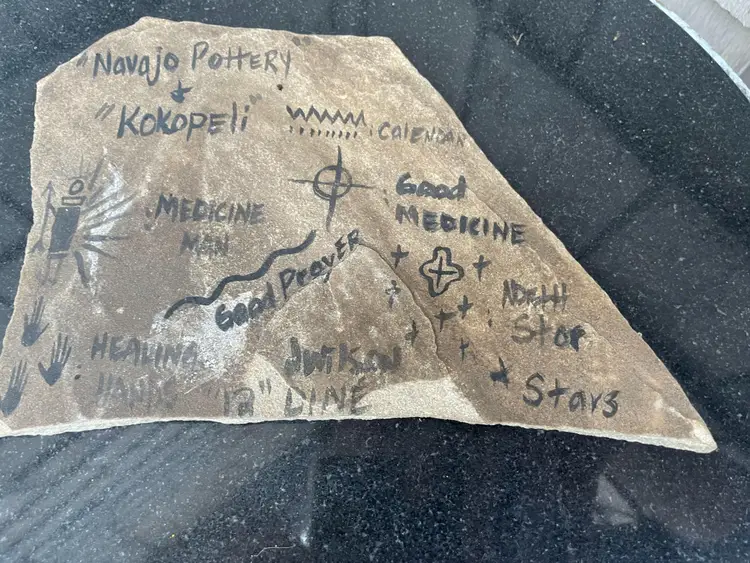 "Navajo POTTERY"
+
"KOKOPELI"
: CALENDAR
: Good
MEDICINE
: MEDICINE
MAN
Good Prayer
: NORTH
Star
HEALING
HANDS
DINÉ
Stars